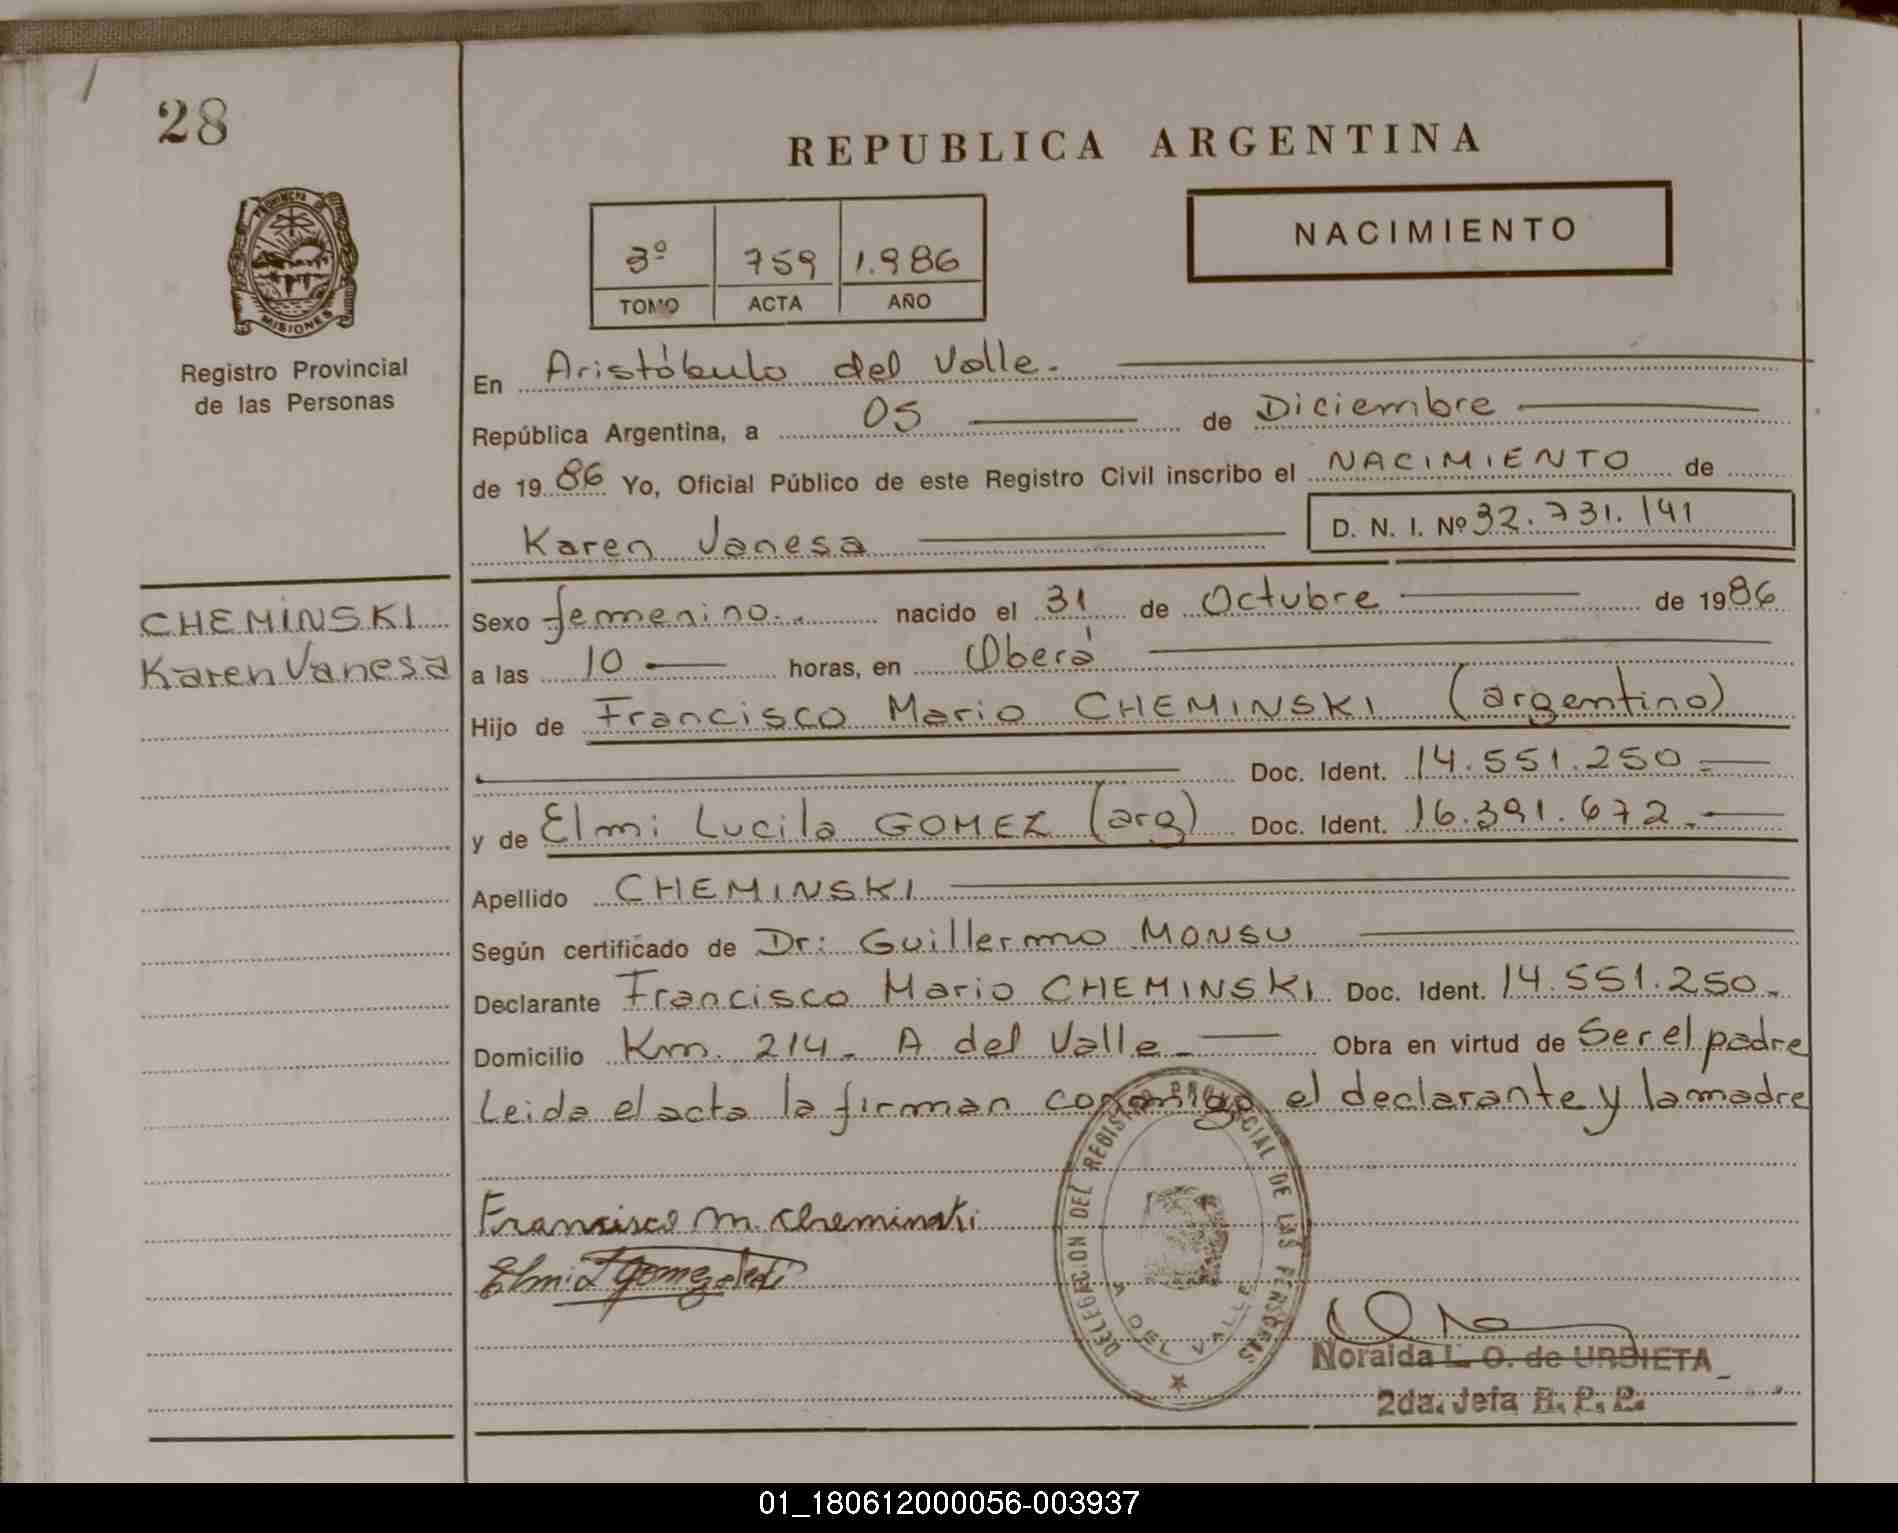 28
REPUBLICA ARGENTINA
PROVINCIA DE MISIONES
Registro Provincial
de las Personas
3º 759 1.986
TOMO ACTA AÑO
NACIMIENTO
En Aristóbulo del Valle.
República Argentina, a 05 de Diciembre
de 1986 Yo, Oficial Público de este Registro Civil inscribo el NACIMIENTO de
Karen Vanesa D. N. I. Nº 32.731.141
CHEMINSKI
Karen Vanesa
Sexo femenino. nacido el 31 de Octubre de 1986
a las 10 horas, en Oberá
Hijo de Francisco Mario CHEMINSKI (argentino)
Doc. Ident. 14.551.250
y de Elmi Lucila GOMEZ (arg) Doc. Ident. 16.391.672
Apellido CHEMINSKI
Según certificado de Dr: Guillermo MONSU
Declarante Francisco Mario CHEMINSKI Doc. Ident. 14.551.250
Domicilio Km. 214 - A del Valle Obra en virtud de Ser el padre
Leida el acta la firman conmigo el declarante y la madre
Francisco M. Cheminski
Elmi L Gomez
DELEGACION DEL REGISTRO PROVINCIAL DE LAS PERSONAS
A DEL VALLE
Noraida L. O. de URBIETA
2da. Jefa R. P. P.
01_180612000056-003937